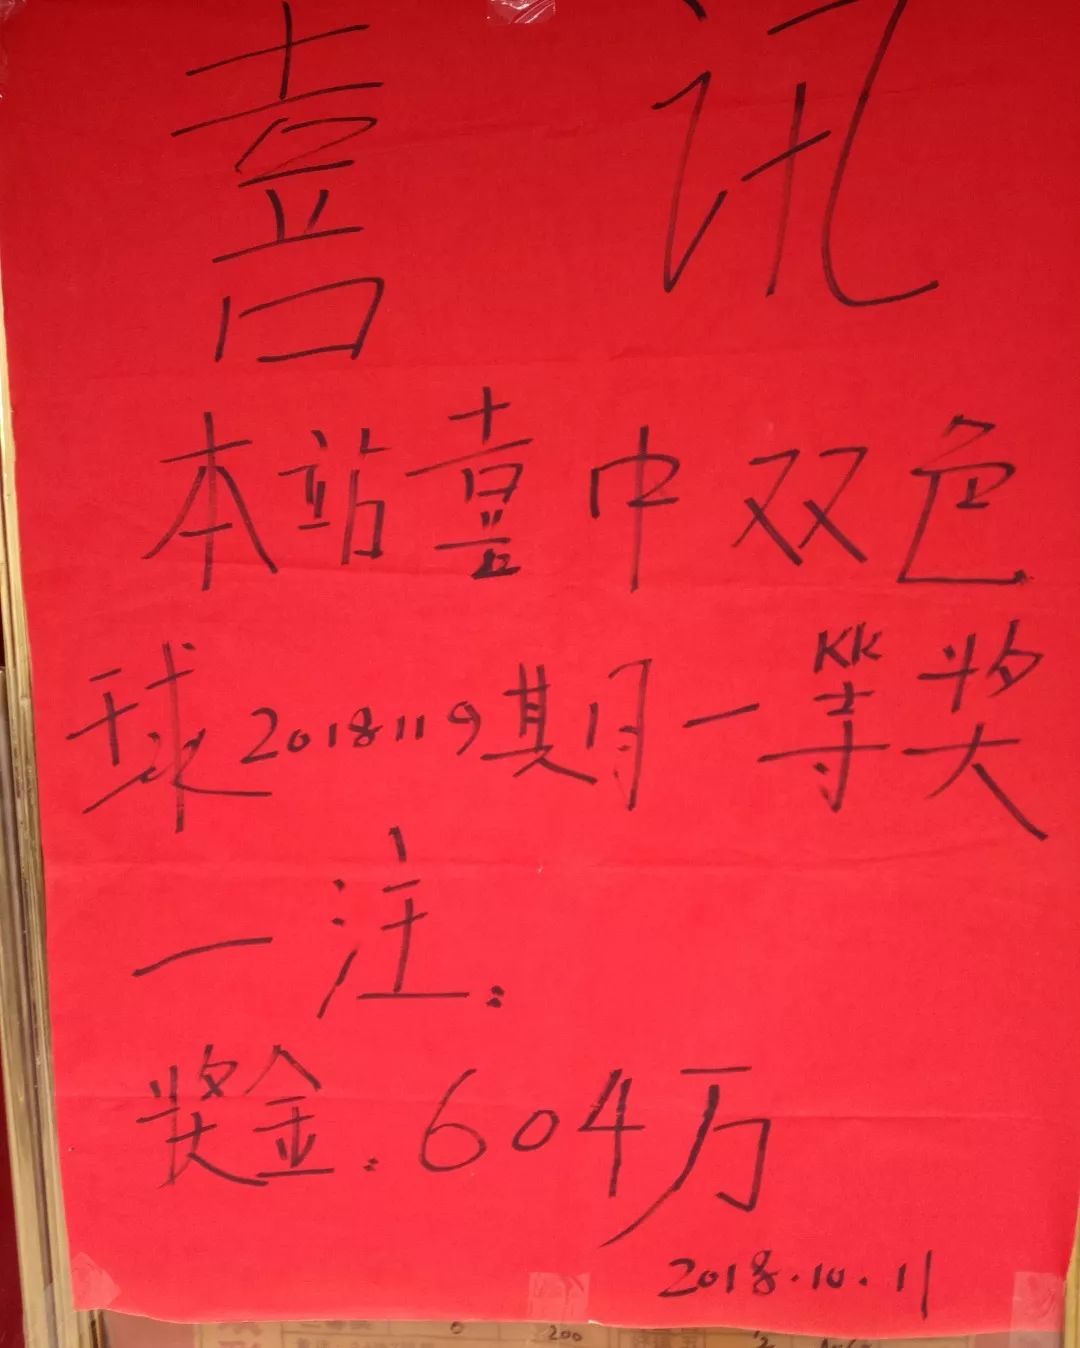 喜讯
本站喜中双色
球2018119期一等奖
一注:
奖金:604万
2018.10.11
0 200